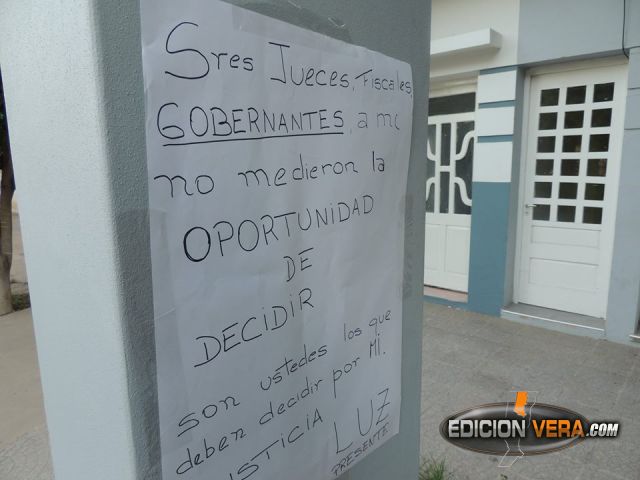 Sres Jueces, Fiscales,
GOBERNANTES, a mi
no medieron la
OPORTUNIDAD
DE
DECIDIR
son ustedes los que
deben decidir por Mi.
USTICIA LUZ
PRESENTE
EDICION VERA.COM